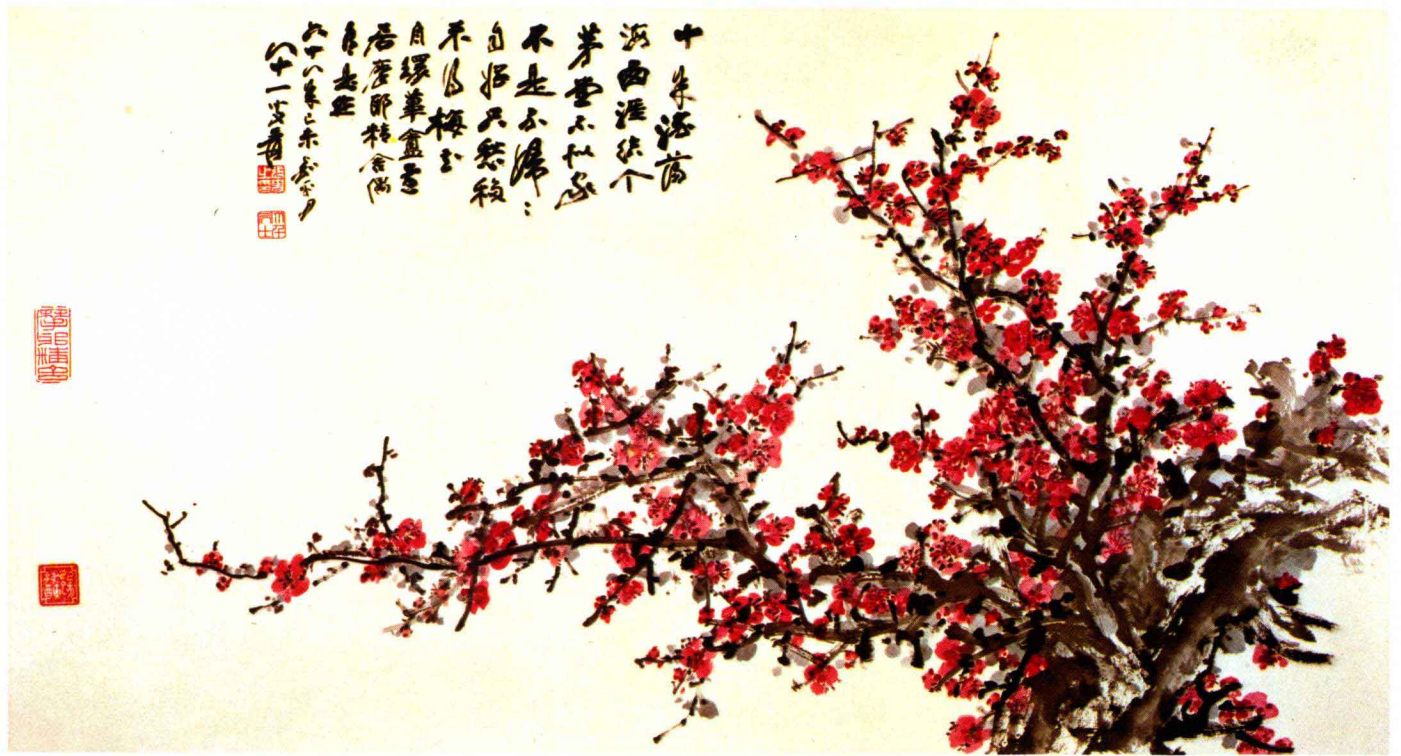 十年流蕩
海西涯結个
茅堂不似家
不是不歸〻
自好只愁移
不得梅花
自環蓽盦遷
居摩耶精舍偶
有是作
六十八年己未嘉平月
八十一叟爰
摩耶精舍